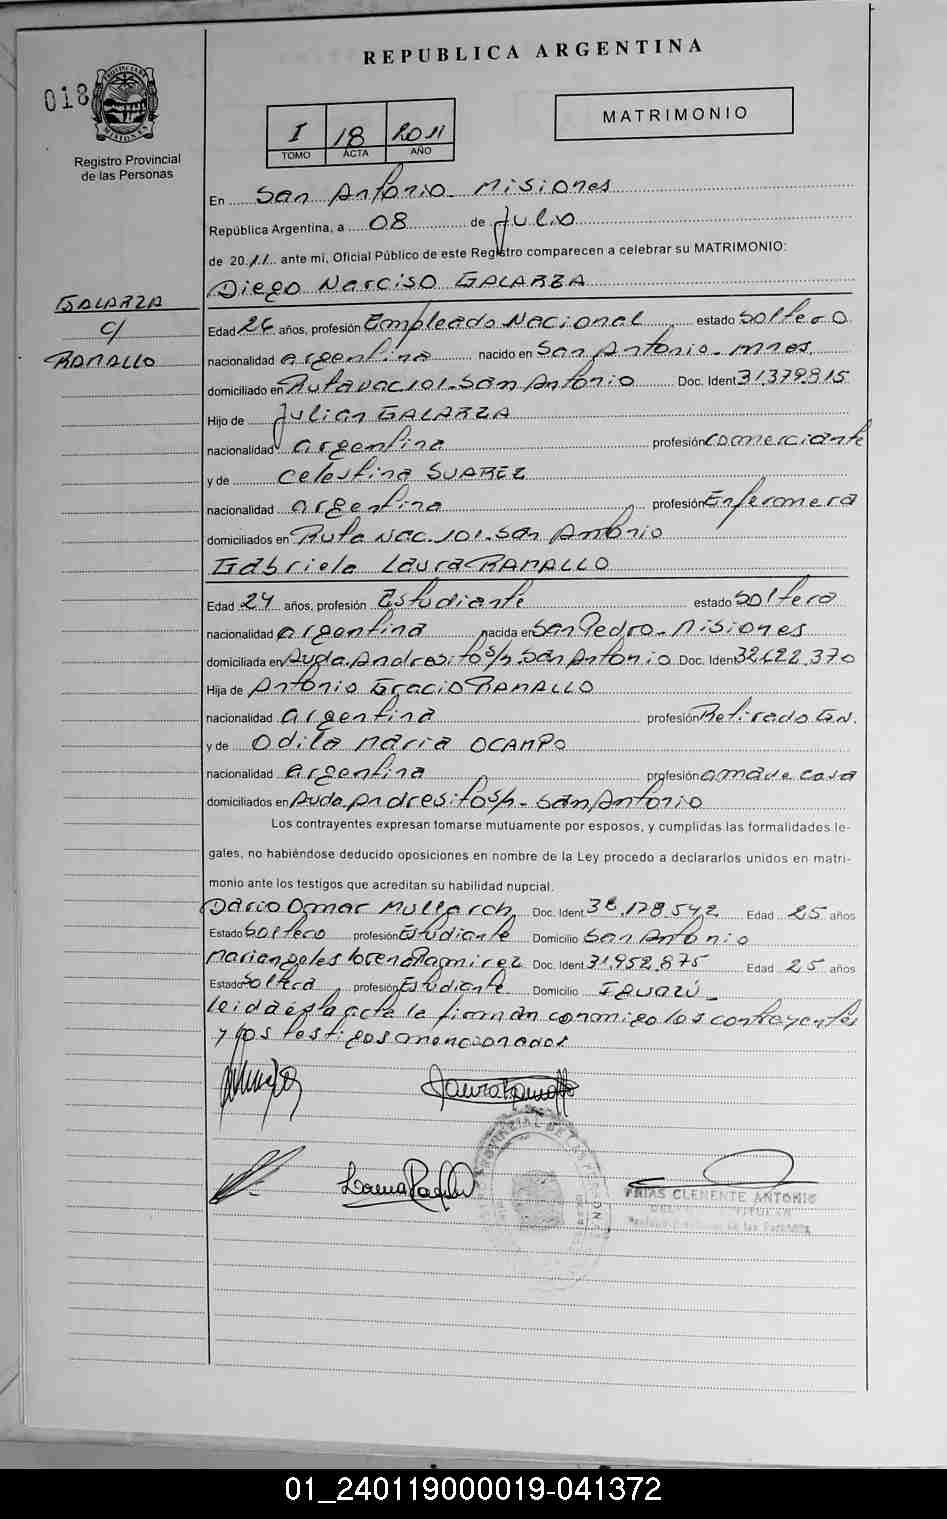 REPUBLICA ARGENTINA
018
PROVINCIA DE MISIONES
Registro Provincial
de las Personas
I 18 2011
TOMO ACTA AÑO
MATRIMONIO
En San Antonio - Misiones
República Argentina, a 08 de Julio
de 2011 ante mí, Oficial Público de este Registro comparecen a celebrar su MATRIMONIO:
Diego Narciso GALARZA
GALARZA
C/
RAMALLO
Edad 26 años, profesión Empleado Nacional estado Soltero
nacionalidad argentina nacido en San Antonio - Mnes
domiciliado en Ruta Nac 101 - San Antonio Doc. Ident 31.379.815
Hijo de Julian GALARZA
nacionalidad argentina profesión comerciante
y de Celestina SUAREZ
nacionalidad argentina profesión Enfermera
domiciliados en Ruta Nac. 101 - San Antonio
Gabriela Laura RAMALLO
Edad 24 años, profesión Estudiante estado Soltera
nacionalidad argentina nacida en San Pedro - Misiones
domiciliada en Avda. Andresito s/n San Antonio Doc. Iden 32.622.370
Hija de Antonio Gracio RAMALLO
nacionalidad argentina profesión Retirado G.N.
y de Odila Maria OCAMPO
nacionalidad argentina profesión ama de casa
domiciliados en Avda. Andresito s/n - San Antonio
Los contrayentes expresan tomarse mutuamente por esposos, y cumplidas las formalidades le-
gales, no habiéndose deducido oposiciones en nombre de la Ley procedo a declararlos unidos en matri-
monio ante los testigos que acreditan su habilidad nupcial.
Dario Omar Doc. Ident. 38.178.542 Edad 25 años
Estado Soltero profesión Estudiante Domicilio San Antonio
Mariangeles Lorena Ramirez Doc. Ident 31.952.875 Edad 25 años
Estado Soltera profesión Estudiante Domicilio Iguazú -
Leida esta acta la firman conmigo los contrayentes
y los testigos mencionados
FRIAS CLEMENTE ANTONIO
01_240119000019-041372